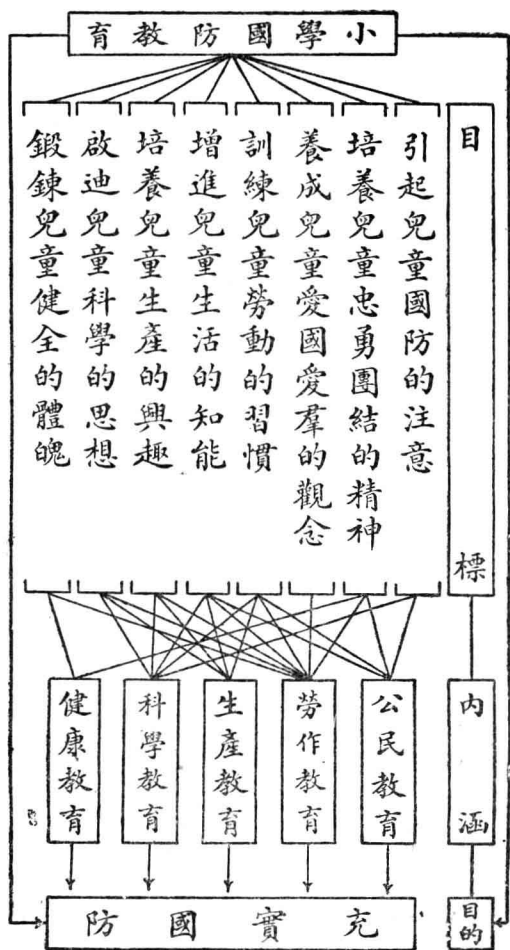 小學國防教育
目標
引起兒童國防的注意
培養兒童忠勇團結的精神
養成兒童愛國愛羣的觀念
訓練兒童勞動的習慣
增進兒童生活的知能
培養兒童生產的興趣
啟迪兒童科學的思想
鍛鍊兒童健全的體魄
內涵
公民教育
勞作教育
生產教育
科學教育
健康教育
目的
充實國防